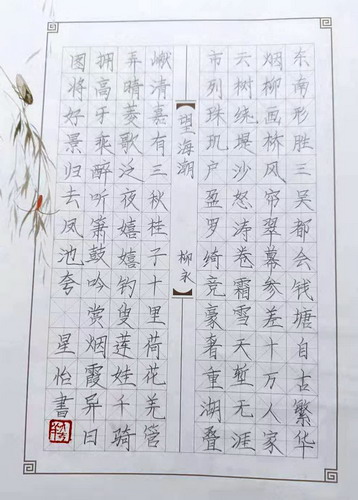 东南形胜三吴都会钱塘自古繁华
烟柳画桥风帘翠幕参差十万人家
云树绕堤沙怒涛卷霜雪天堑无涯
市列珠玑户盈罗绮竞豪奢重湖叠
【望海潮 柳永】
清嘉有三秋桂子十里荷花羌管
弄晴菱歌泛夜嬉嬉钓叟莲娃千骑
拥高牙乘醉听箫鼓吟赏烟霞异日
图将好景归去凤池夸 星怡書